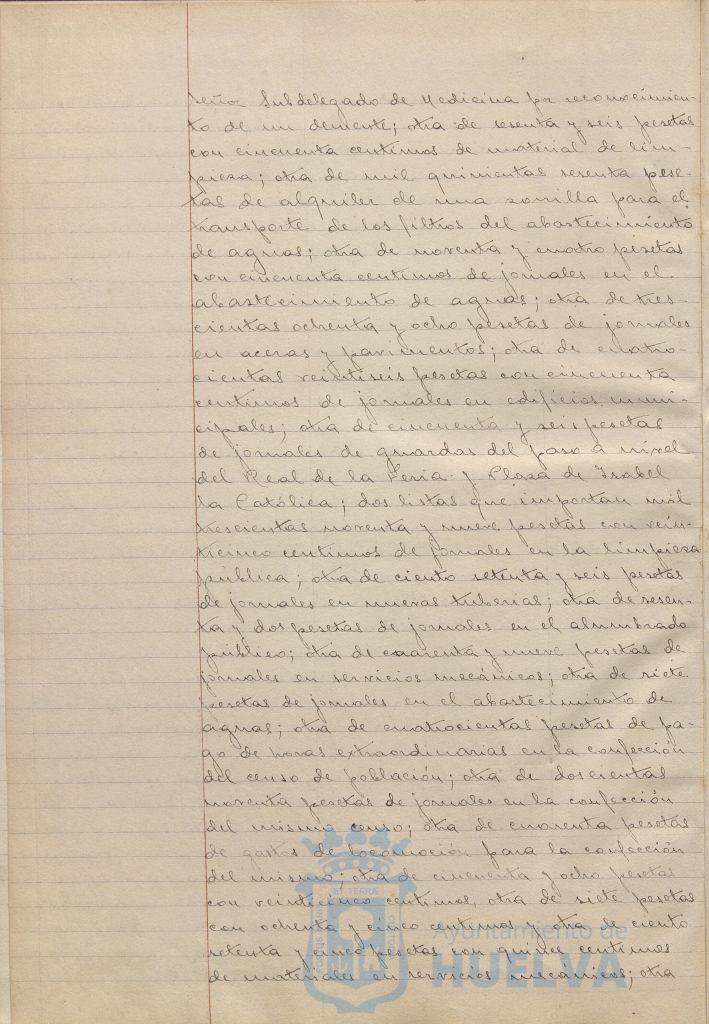 señor Subdelegado de Medicina por reconocimien-
to de un demente; otra de sesenta y seis pesetas
con cincuenta centimos de material de lim-
pieza; otra de mil quinientas sesenta pese-
tas de alquiler de una zorrilla para el
transporte de los filtros del abastecimiento
de aguas; otra de noventa y cuatro pesetas
con cincuenta centimos de jornales en el
abastecimiento de aguas; otra de tres-
cientas ochenta y ocho pesetas de jornales
en aceras y pavimentos; otra de cuatro-
cientas veintiseis pesetas con cincuenta
centimos de jornales en edificios muni-
cipales; otra de cincuenta y seis pesetas
de jornales de guardas del paso a nivel
del Real de la Feria y Plaza de Isabel
la Católica; dos listas que importan mil
trescientas noventa y nueve pesetas con vein-
ticinco centimos de jornales en la limpieza
pública; otra de ciento setenta y seis pesetas
de jornales en nuevas tuberias; otra de sesen-
ta y dos pesetas de jornales en el alumbrado
público; otra de cuarenta y nueve pesetas de
jornales en servicios mecánicos; otra de siete
pesetas de jornales en el abastecimiento de
aguas; otra de cuatrocientas pesetas de pa-
go de horas extraordinarias en la confección
del censo de población; otra de doscientas
noventa pesetas de jornales en la confección
del mismo censo; otra de cuarenta pesetas
de gastos de locomoción para la confección
del mismo; otra de cincuenta y ocho pesetas
con veinticinco centimos, otra de siete pesetas
con ochenta y cinco centimos y otra de ciento
setenta y cinco pesetas con quince centimos
de materiales en servicios mecánicos; otra
Ayuntamiento de
HUELVA